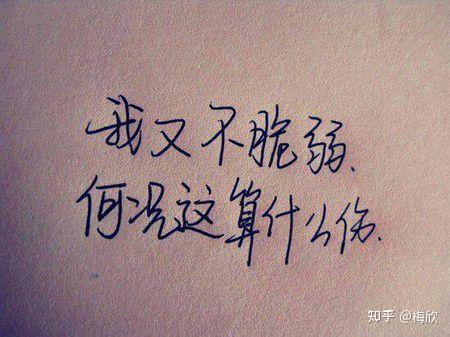 我又不脆弱、
何况这算什么伤、
知乎 @梅欣